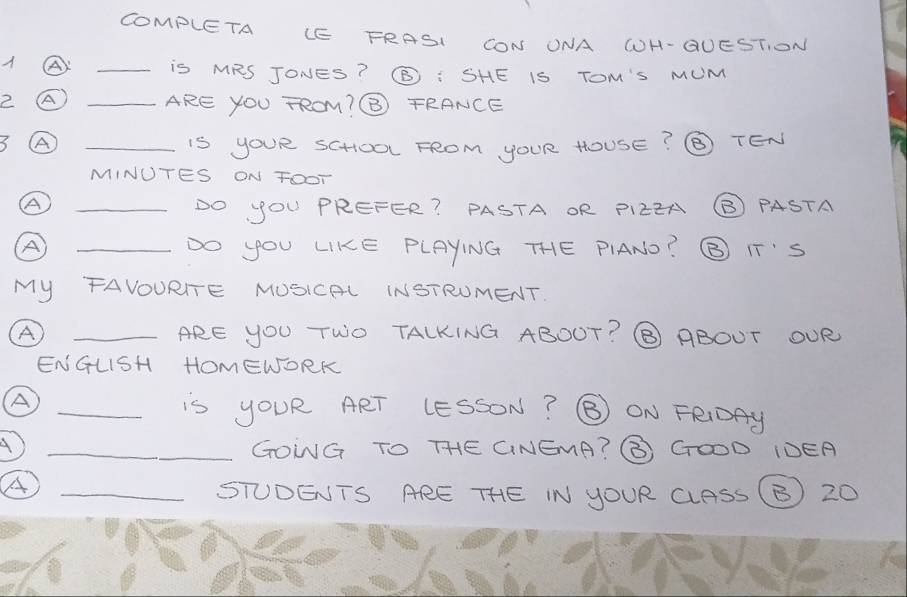 COMPLETA LE FRASI CON UNA WH-QUESTION
1 A: ____ is MRS JONES? B: SHE IS TOM'S MUM
2 A ____ ARE YOU FROM? B FRANCE
3 A ____ IS YOUR SCHOOL FROM YOUR HOUSE? B TEN
MINUTES ON FOOT
A ____ DO YOU PREFER? PASTA OR PIZZA B PASTA
A ____ DO YOU LIKE PLAYING THE PIANO? B IT'S
MY FAVOURITE MUSICAL INSTRUMENT.
A ____ ARE YOU TWO TALKING ABOUT? B ABOUT OUR
ENGLISH HOMEWORK
A ____ is YOUR ART LESSON? B ON FRIDAY
A ____ GOING TO THE CINEMA? B GOOD IDEA
A ____ STUDENTS ARE THE IN YOUR CLASS B 20